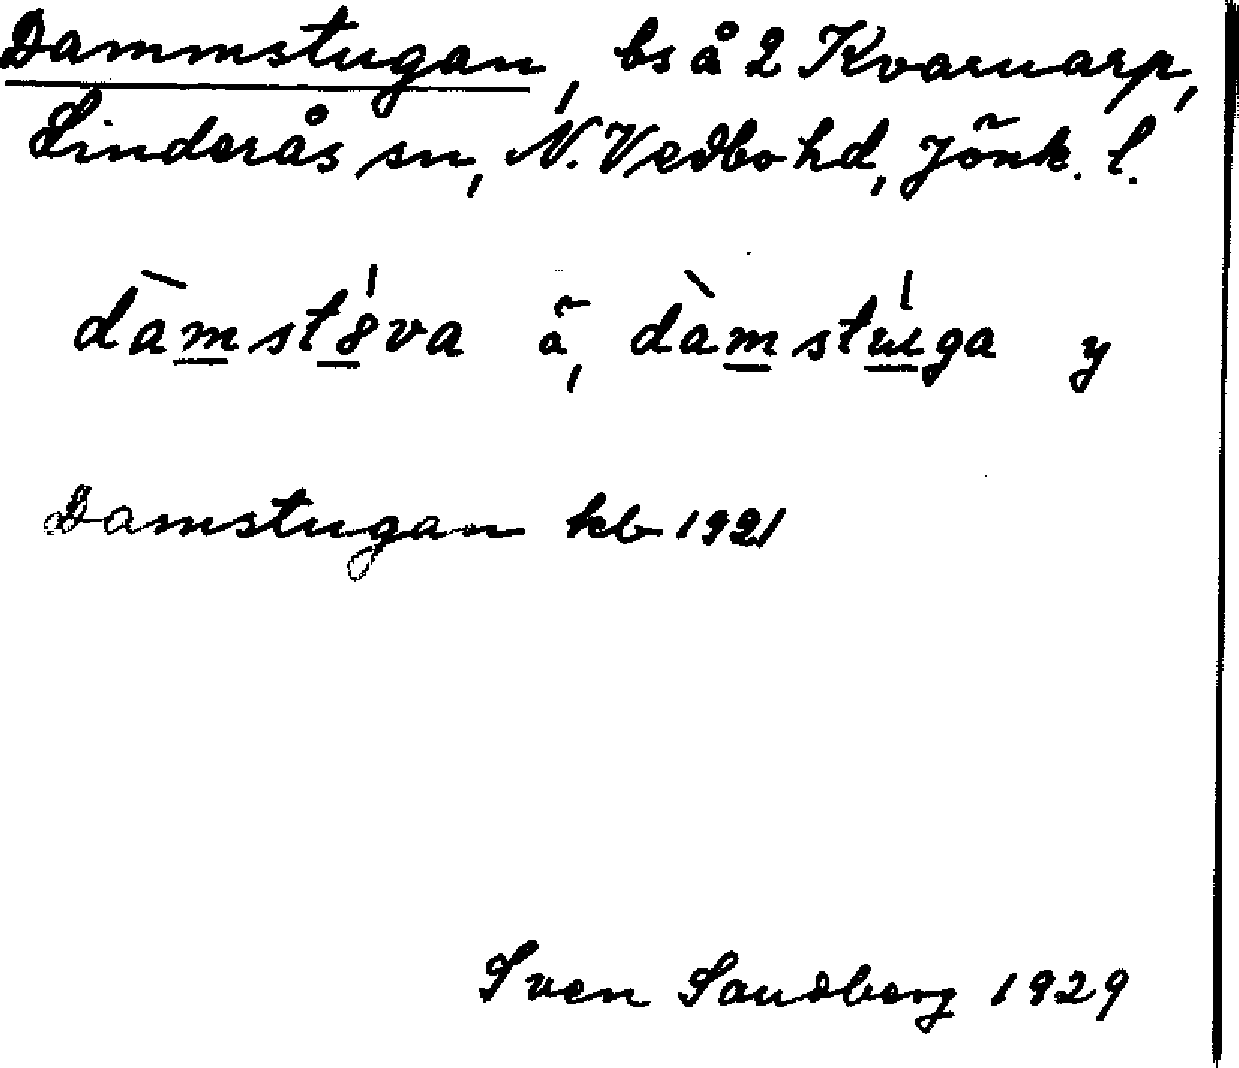 Dammstugan, bs å 2 Kvarnarp,
Linderås sn, N. Vedbo hd, Jönk. l.
dàmst8va ä, dàmstuga y
Damstugan kb 1921
Sven Sandberg 1929